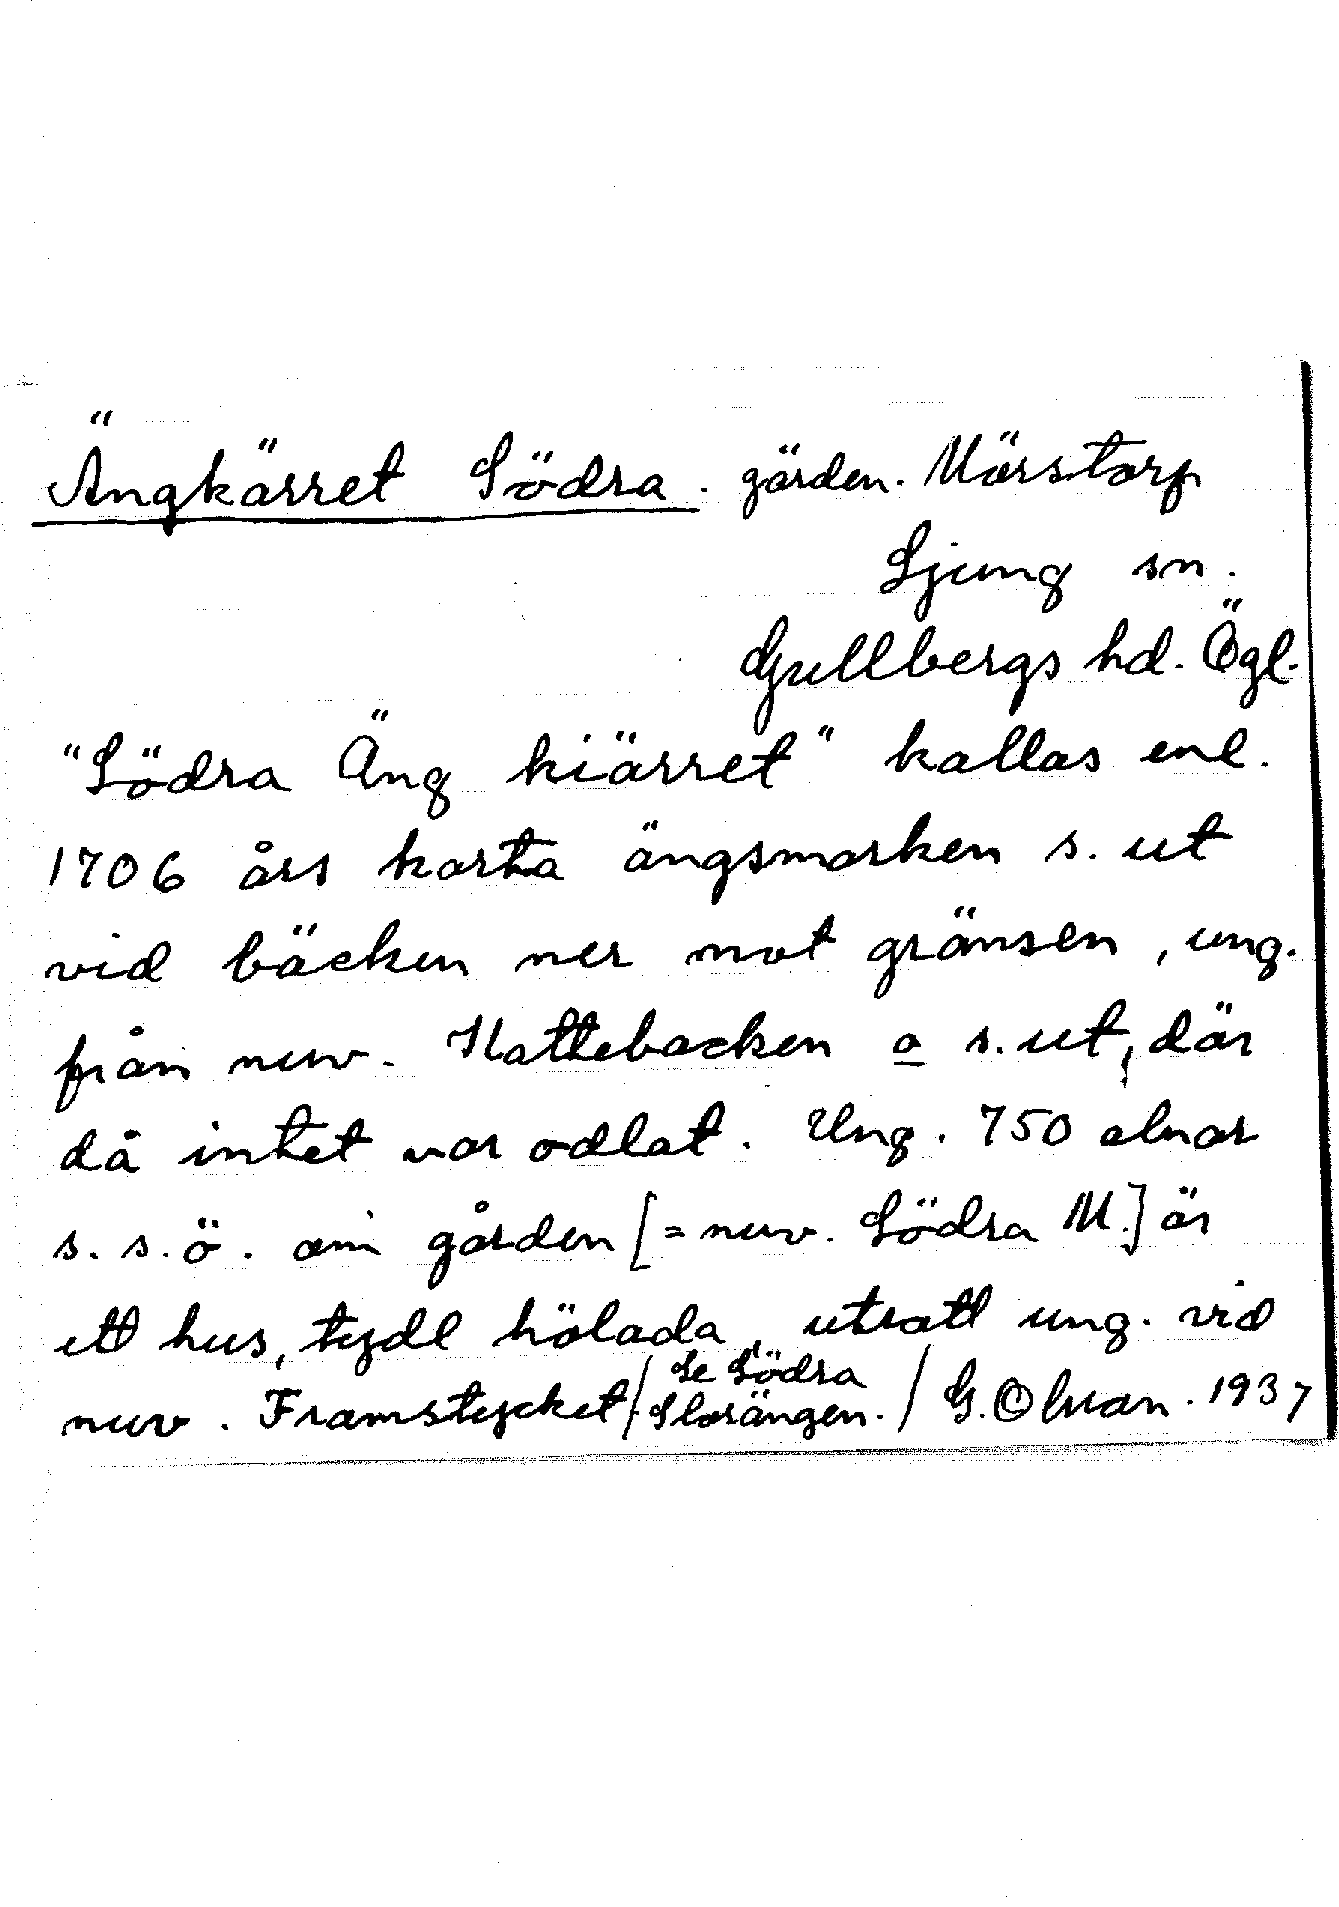 Ängkärret Södra. gärden. Mörstorp
Ljung sn.
Gullbergs hd. Ögl.
"Södra Äng kiärret" kallas enl.
1706 års karta ängsmarken s. ut
vid bäcken ner mot gränsen, ung.
från nuv. Hattebacken o s. ut, där
då intet var odlat. Ung. 750 alnar
s. s. ö. om gården [= nuv. Södra M.] är
ett hus, tydl hölada, utsatt ung. vid
nuv. Framstycket /. Se Södra
Storängen. / G. Olman. 1937